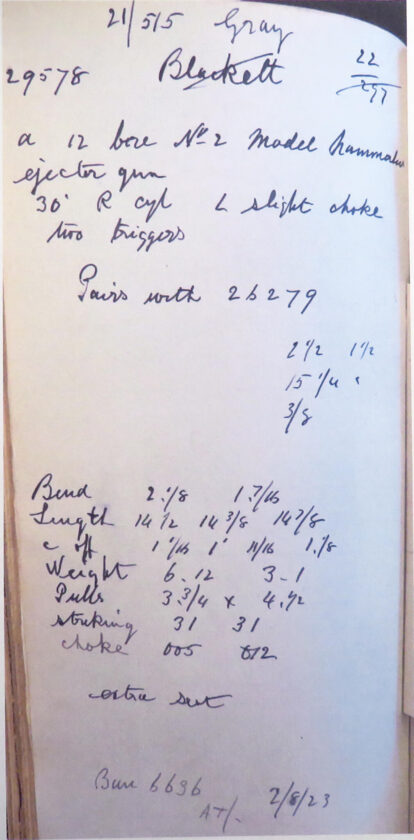 21/515 Gray
29578 Blackett 22
297
a 12 bore No 2 Model hammerless
ejector gun
30" R cyl L slight choke
two triggers
Pairs with 26279
2 1/2 1 1/2
15 1/4
3/8
Bend 2 1/8 1 7/16
Length 14 1/2 14 3/8 14 7/8
c off 1 1/16 1" 11/16 1 1/8
Weight 6.12 3-1
Pulls 3 3/4 x 4 1/2
striking 31 31
choke 005 012
extra set
6696
AT/- 2/8/23